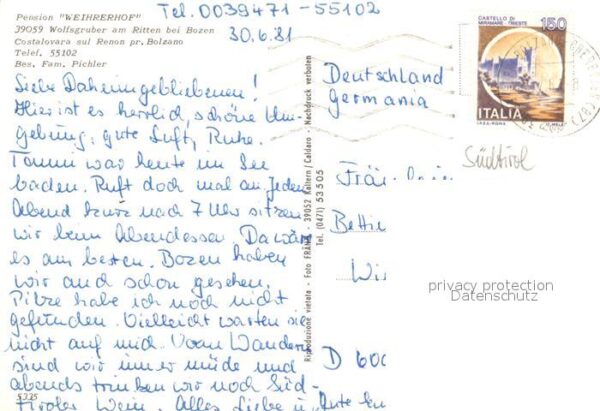 Tel. 0039471-55102
Pension "WEIHRERHOF"
39059 Wolfsgruber am Ritten bei Bozen
Costalovara sul Renon pr. Bolzano
Telef. 55102
Bes. Fam. Pichler
30.6.81
Liebe Daheimgebliebenen!
Hier ist es herrlich, schöne Um-
gebung, gute Luft, Ruhe.
Tommi war heute im See
baden. Ruft doch mal an. Jeden
Abend kurz nach 7 Uhr sitzen
wir beim Abendessen. Da wäre
es am besten. Bozen haben
wir auch schon gesehen.
Pilze habe ich noch nicht
gefunden. Vielleicht warten sie
nicht auf mich. Vom Wandern
sind wir immer müde und
abends trinken wir noch Süd-
tiroler Wein. Alles Liebe u. Gute
5335
Riproduzione vietata - Foto FRÄNK - 39052 Kaltern / Caldaro - Nachdruck verboten
Tel. (0471) 53505
CASTELLO DI
MIRAMARE - TRIESTE
150
ITALIA
Deutschland
Germania
Südtirol
Fräu
Betti
Wi
D 600
privacy protection
Datenschutz